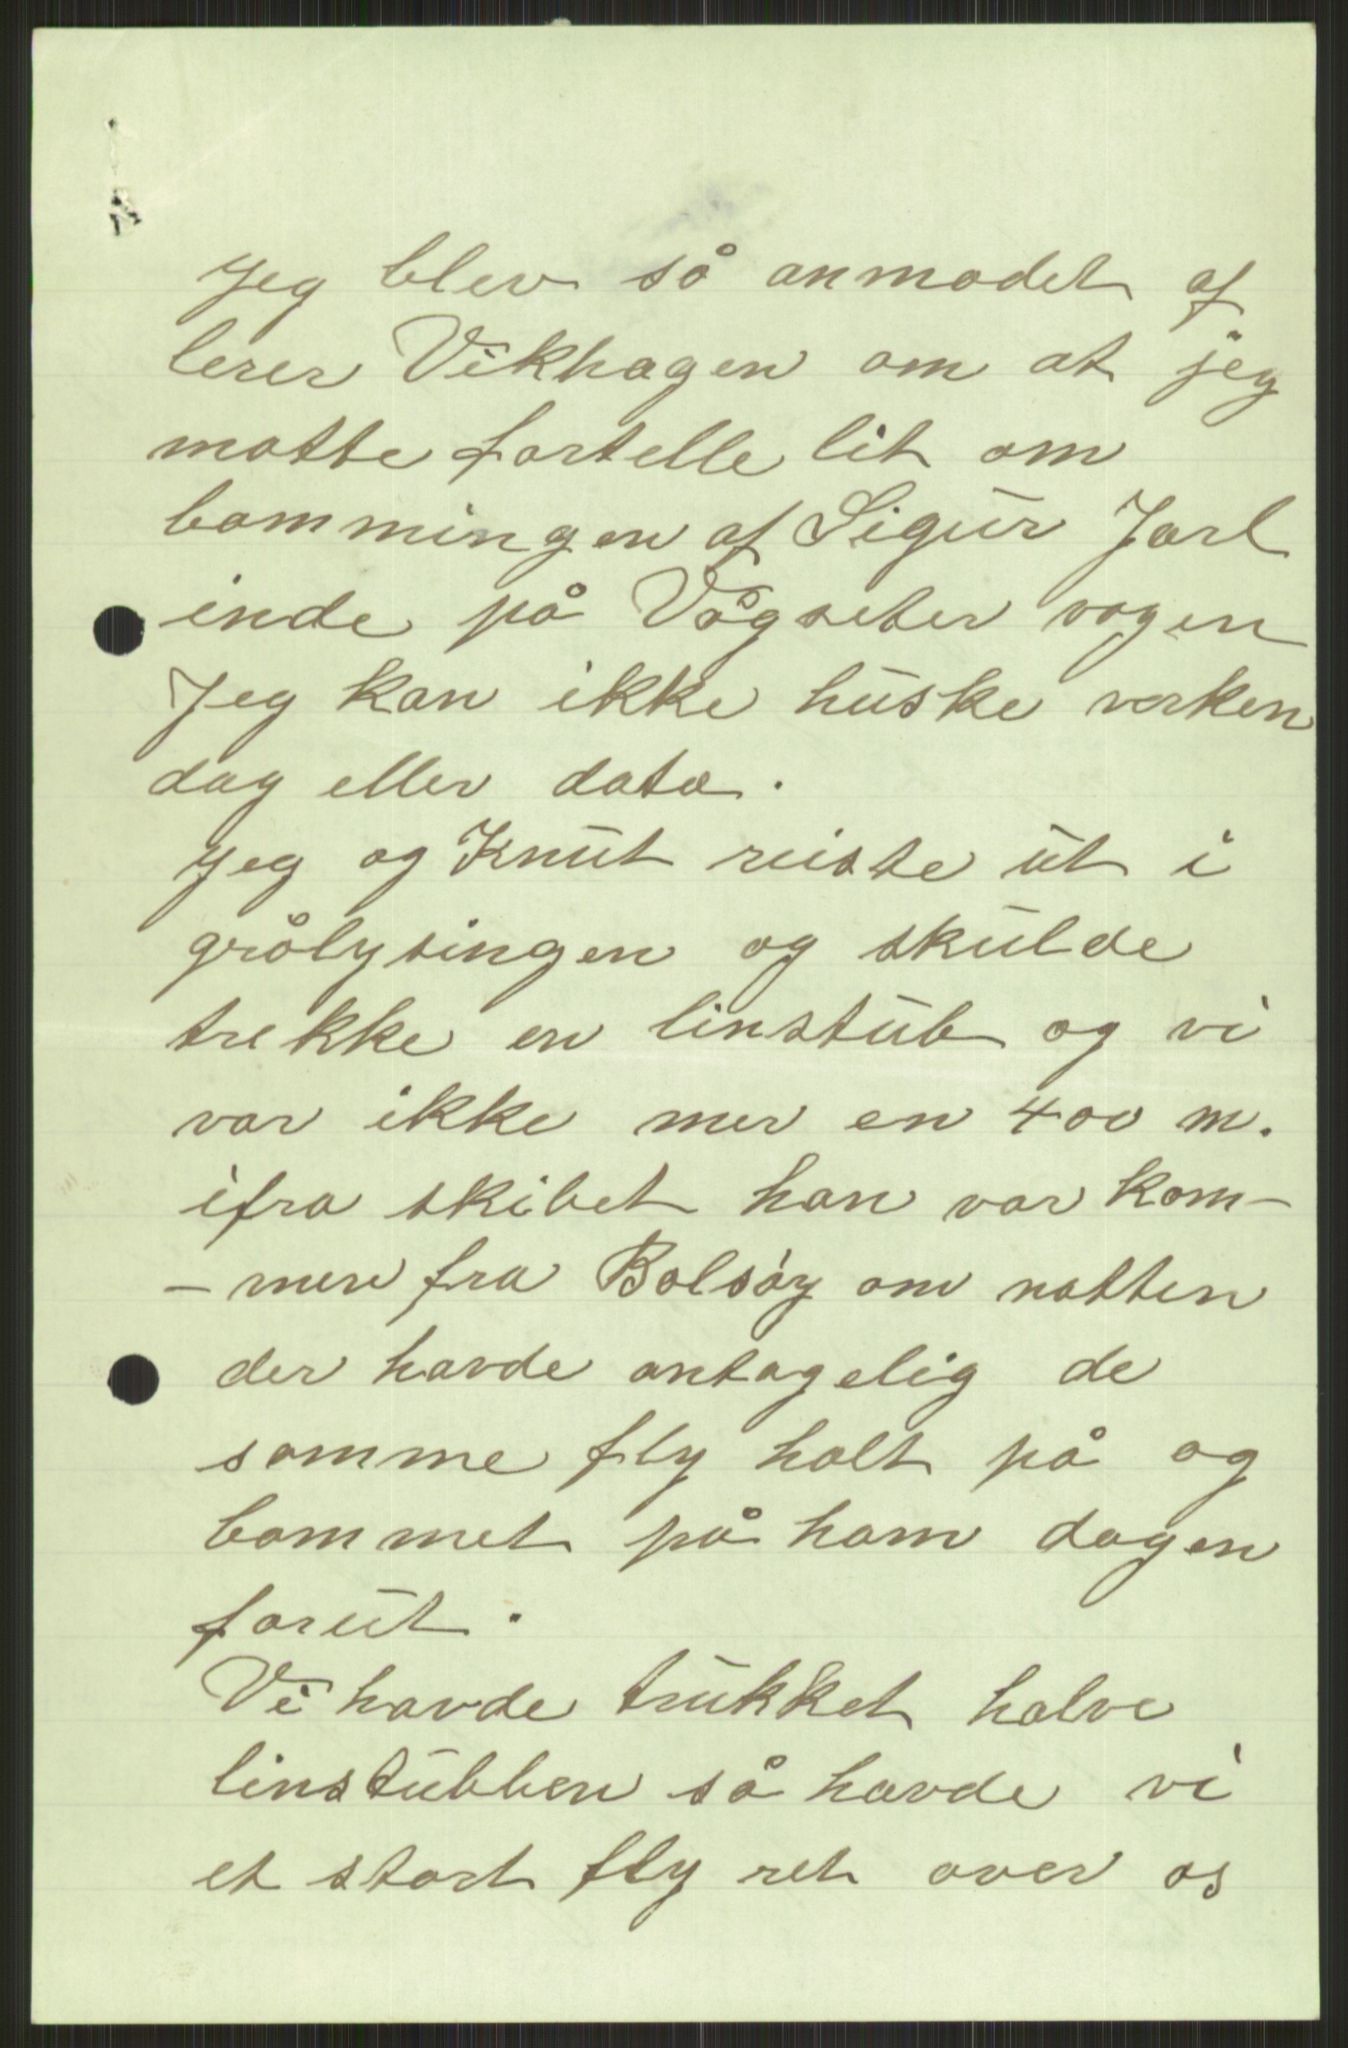 Jeg blev så anmodet af
lerer Vikhagen om at jeg
motte fortelle lit om
bommingen af Sigur Jarl
inde på Vågseter vogen
Jeg kan ikke huske verken
dag eller dato.
Jeg og Knut reiste ut i
grålysingen og skulde
trekke en linstub og vi
var ikke mer en 400 m.
ifra skibet han var kom-
-men fra Bolsöy om natten
der havde antagelig de
samme fly holt på og
bommet på ham dagen
forut.
Vi havde trukket halve
linstubben så havde vi
et stort fly ret over os